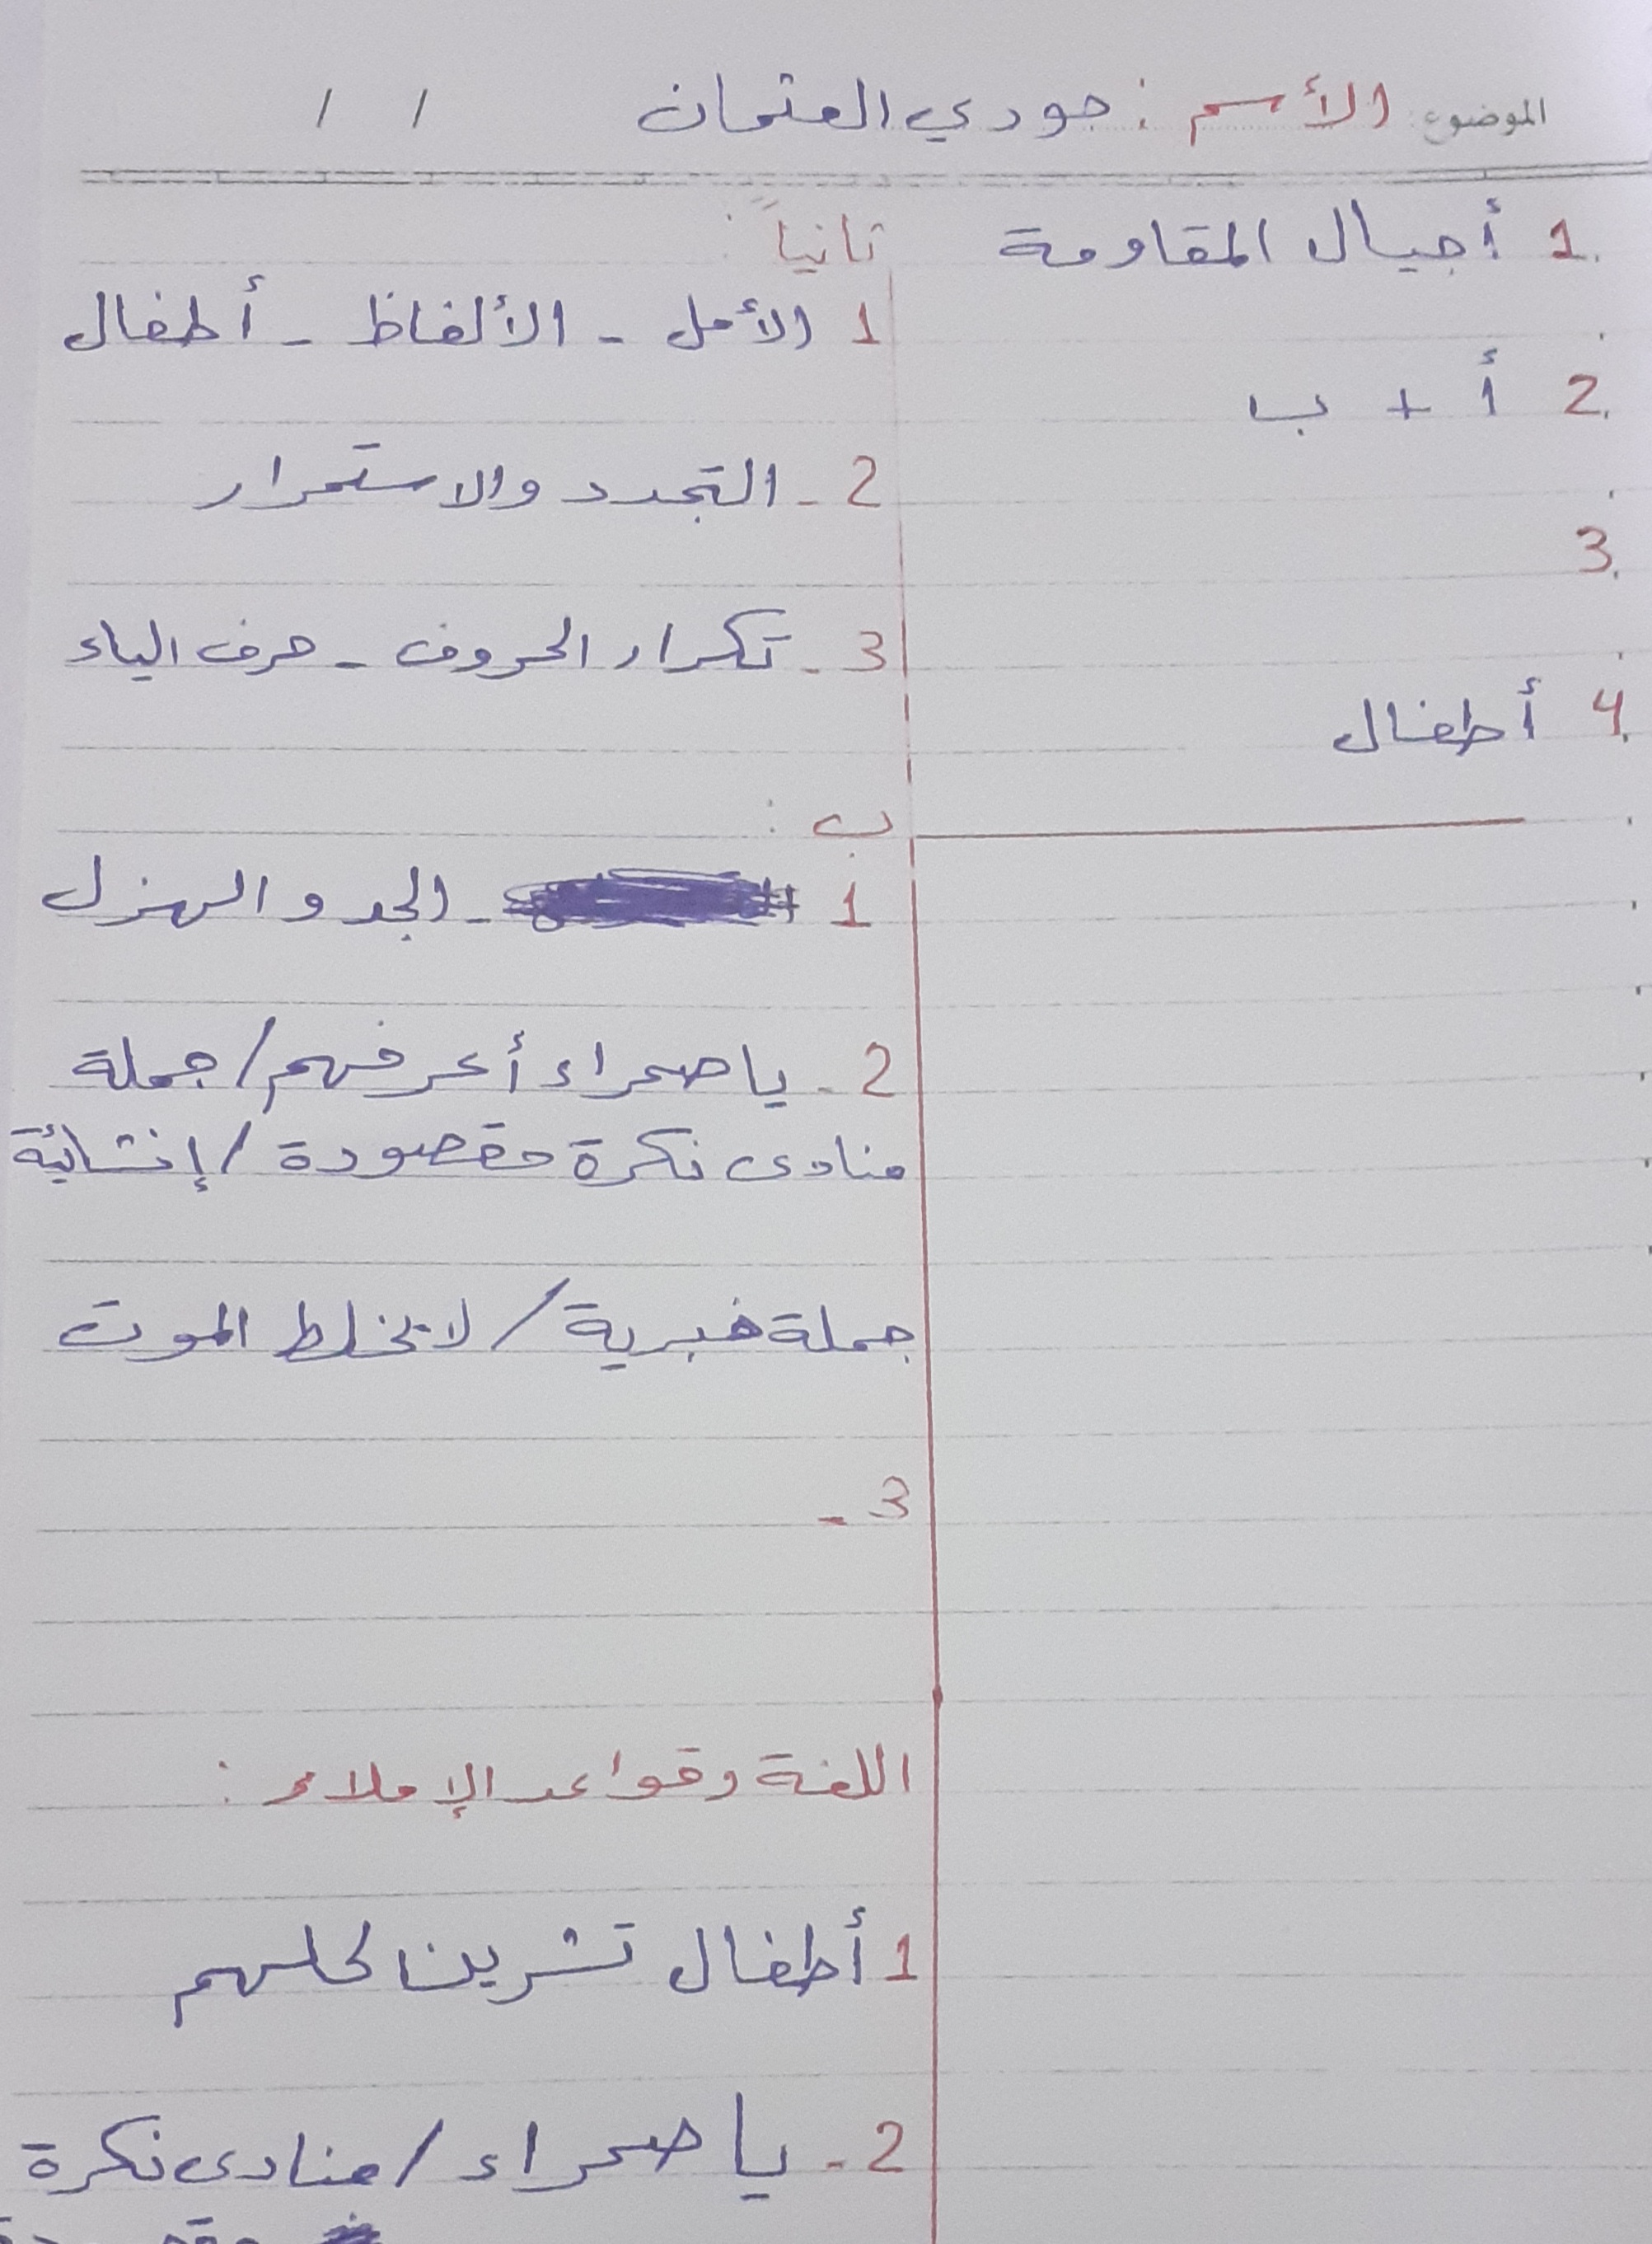 الموضوع: الأسم : جودي العثمان / /
1. أجيال المقاومة
2. أ + ب
3.
4. أطفال
ثانياً :
1 الأمل - الألفاظ - أطفال
2 - التجدد والاستمرار
3 - تكرار الحروف - حرف الياء
ب :
1 - الجد و الهزل
2 - يا صحراء أعرفهم / جملة
منادى نكرة مقصودة / إنشائية
جملة خبرية / لا يخلط الموت
3 -
اللغة وقواعد الإملاء :
1 أطفال تشرين كلهم
2 - يا صحراء / منادى نكرة